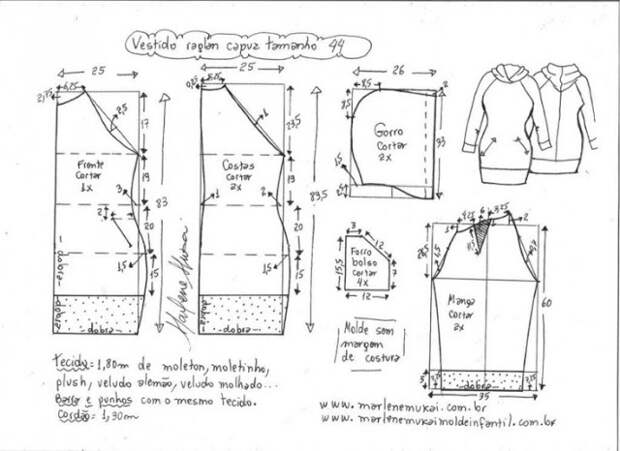 Vestido raglan capuz tamanho 44
25
6,25
2,75
2,5
17
Frente
cortar
1x
19
3
83
2
20
1,5
15
dobra
dobra
dobra
Marlene Mukai
25
8,25
1
23,5
Costas
cortar
2x
1
2
19
83,5
20
1,5
15
dobra
dobra
26
8,5
2
8,5
Gorro
cortar
2x
33
1,5
3
12
Forro
bolso
cortar
4x
15,5
7
12
Molde sem
margem
de costura
6
4,25
3,25
2
1
Manga
cortar
2x
60
dobra
35
Tecido= 1,80m de moleton, moletinho,
plush, veludo alemão, veludo molhado...
Barra e punhos com o mesmo tecido.
Cordão= 1,30m
www.marlenemukai.com.br
www.marlenemukaimoldeinfantil.com.br